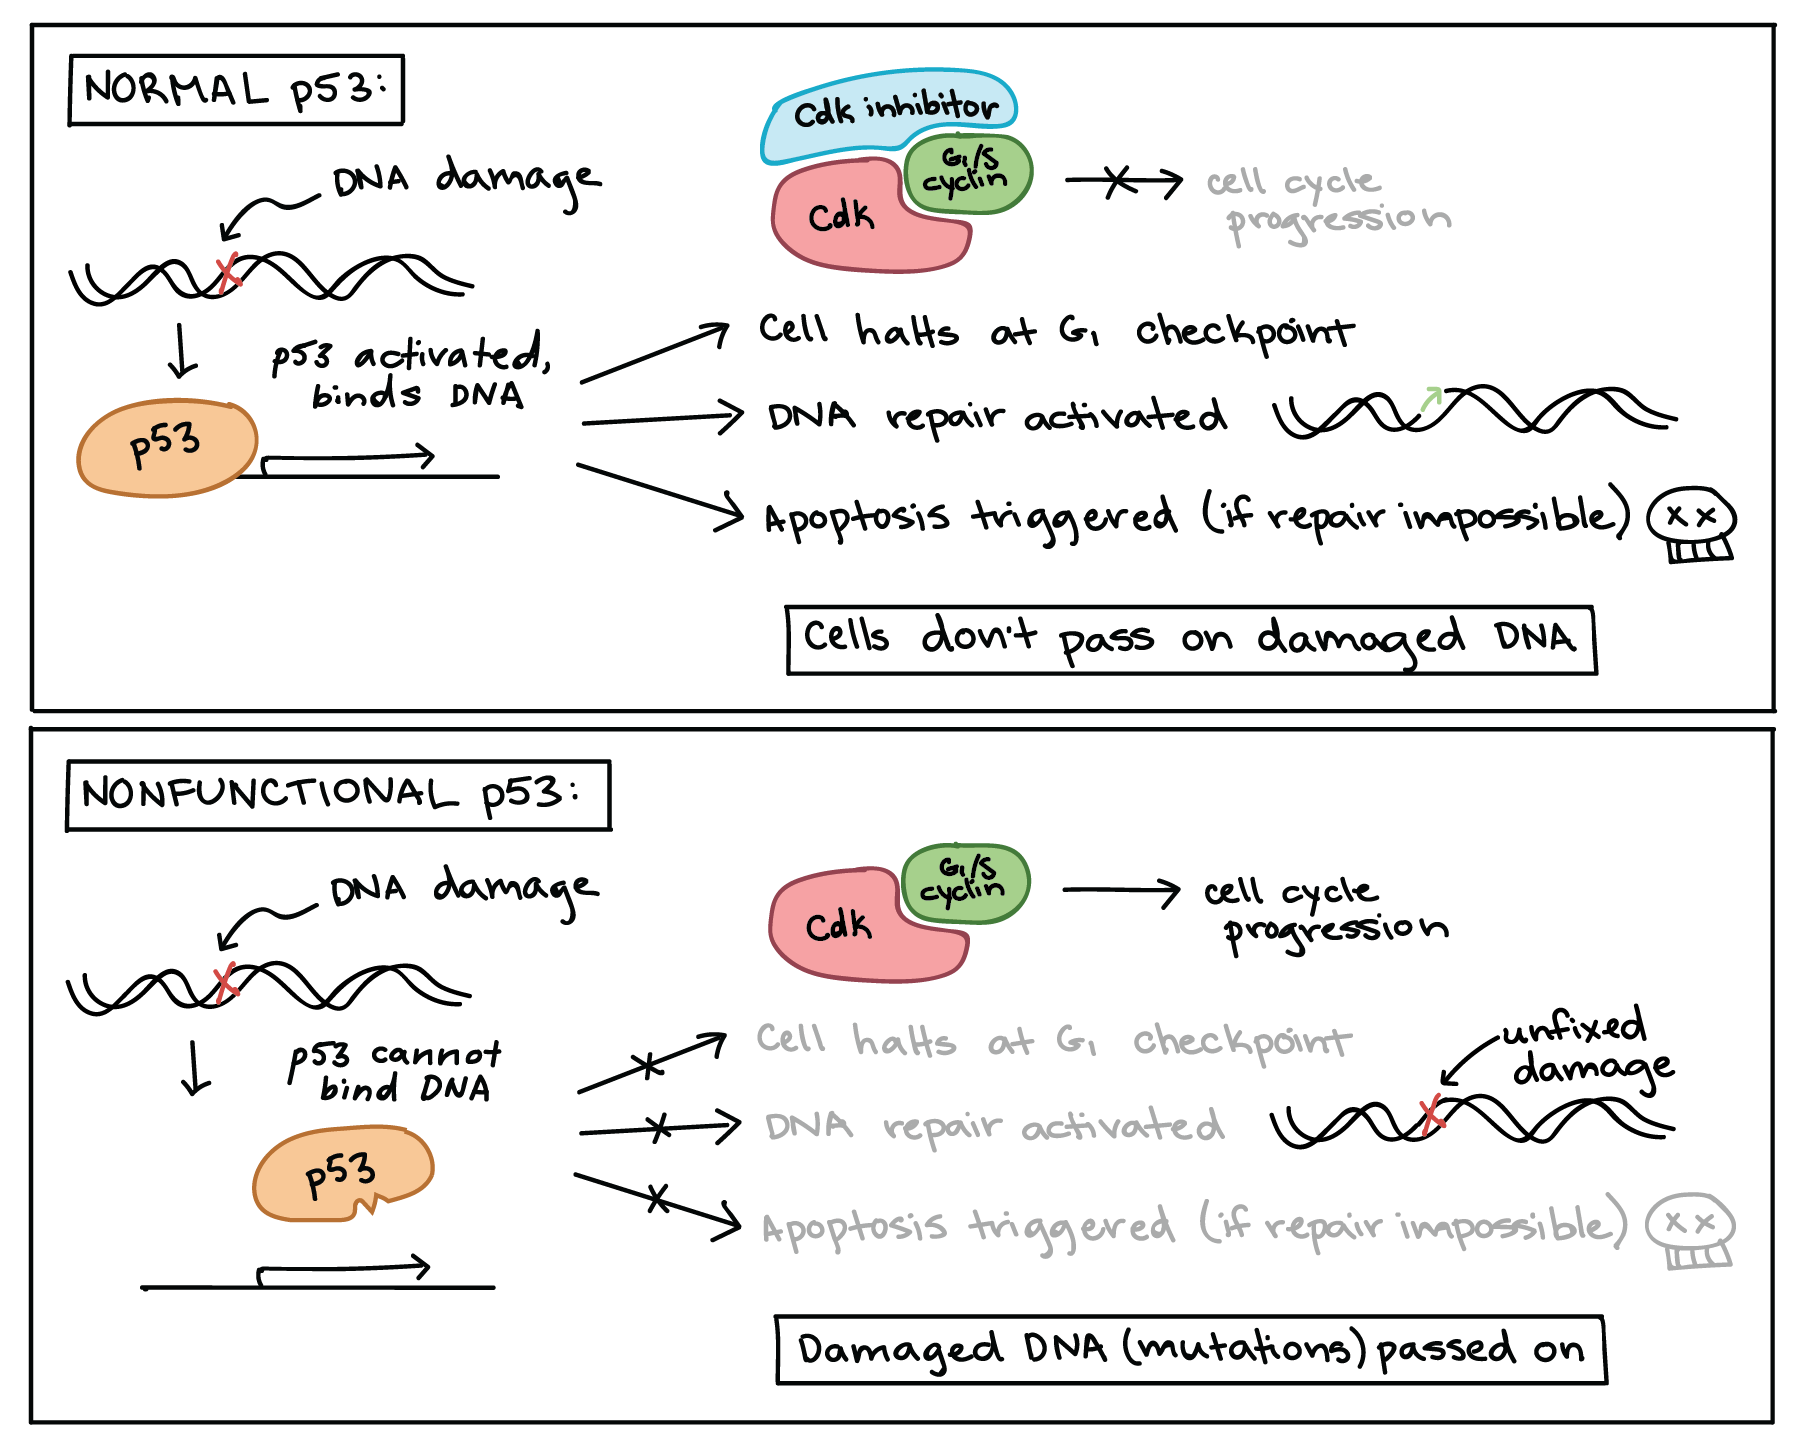 NORMAL p53:
DNA damage
p53 activated,
binds DNA
p53
Cdk inhibitor
G₁/S
cyclin
Cdk
cell cycle
progression
Cell halts at G₁ checkpoint
DNA repair activated
Apoptosis triggered (if repair impossible)
Cells don't pass on damaged DNA
NONFUNCTIONAL p53:
DNA damage
p53 cannot
bind DNA
p53
G₁/S
cyclin
Cdk
cell cycle
progression
Cell halts at G₁ checkpoint
unfixed
damage
DNA repair activated
Apoptosis triggered (if repair impossible)
Damaged DNA (mutations) passed on